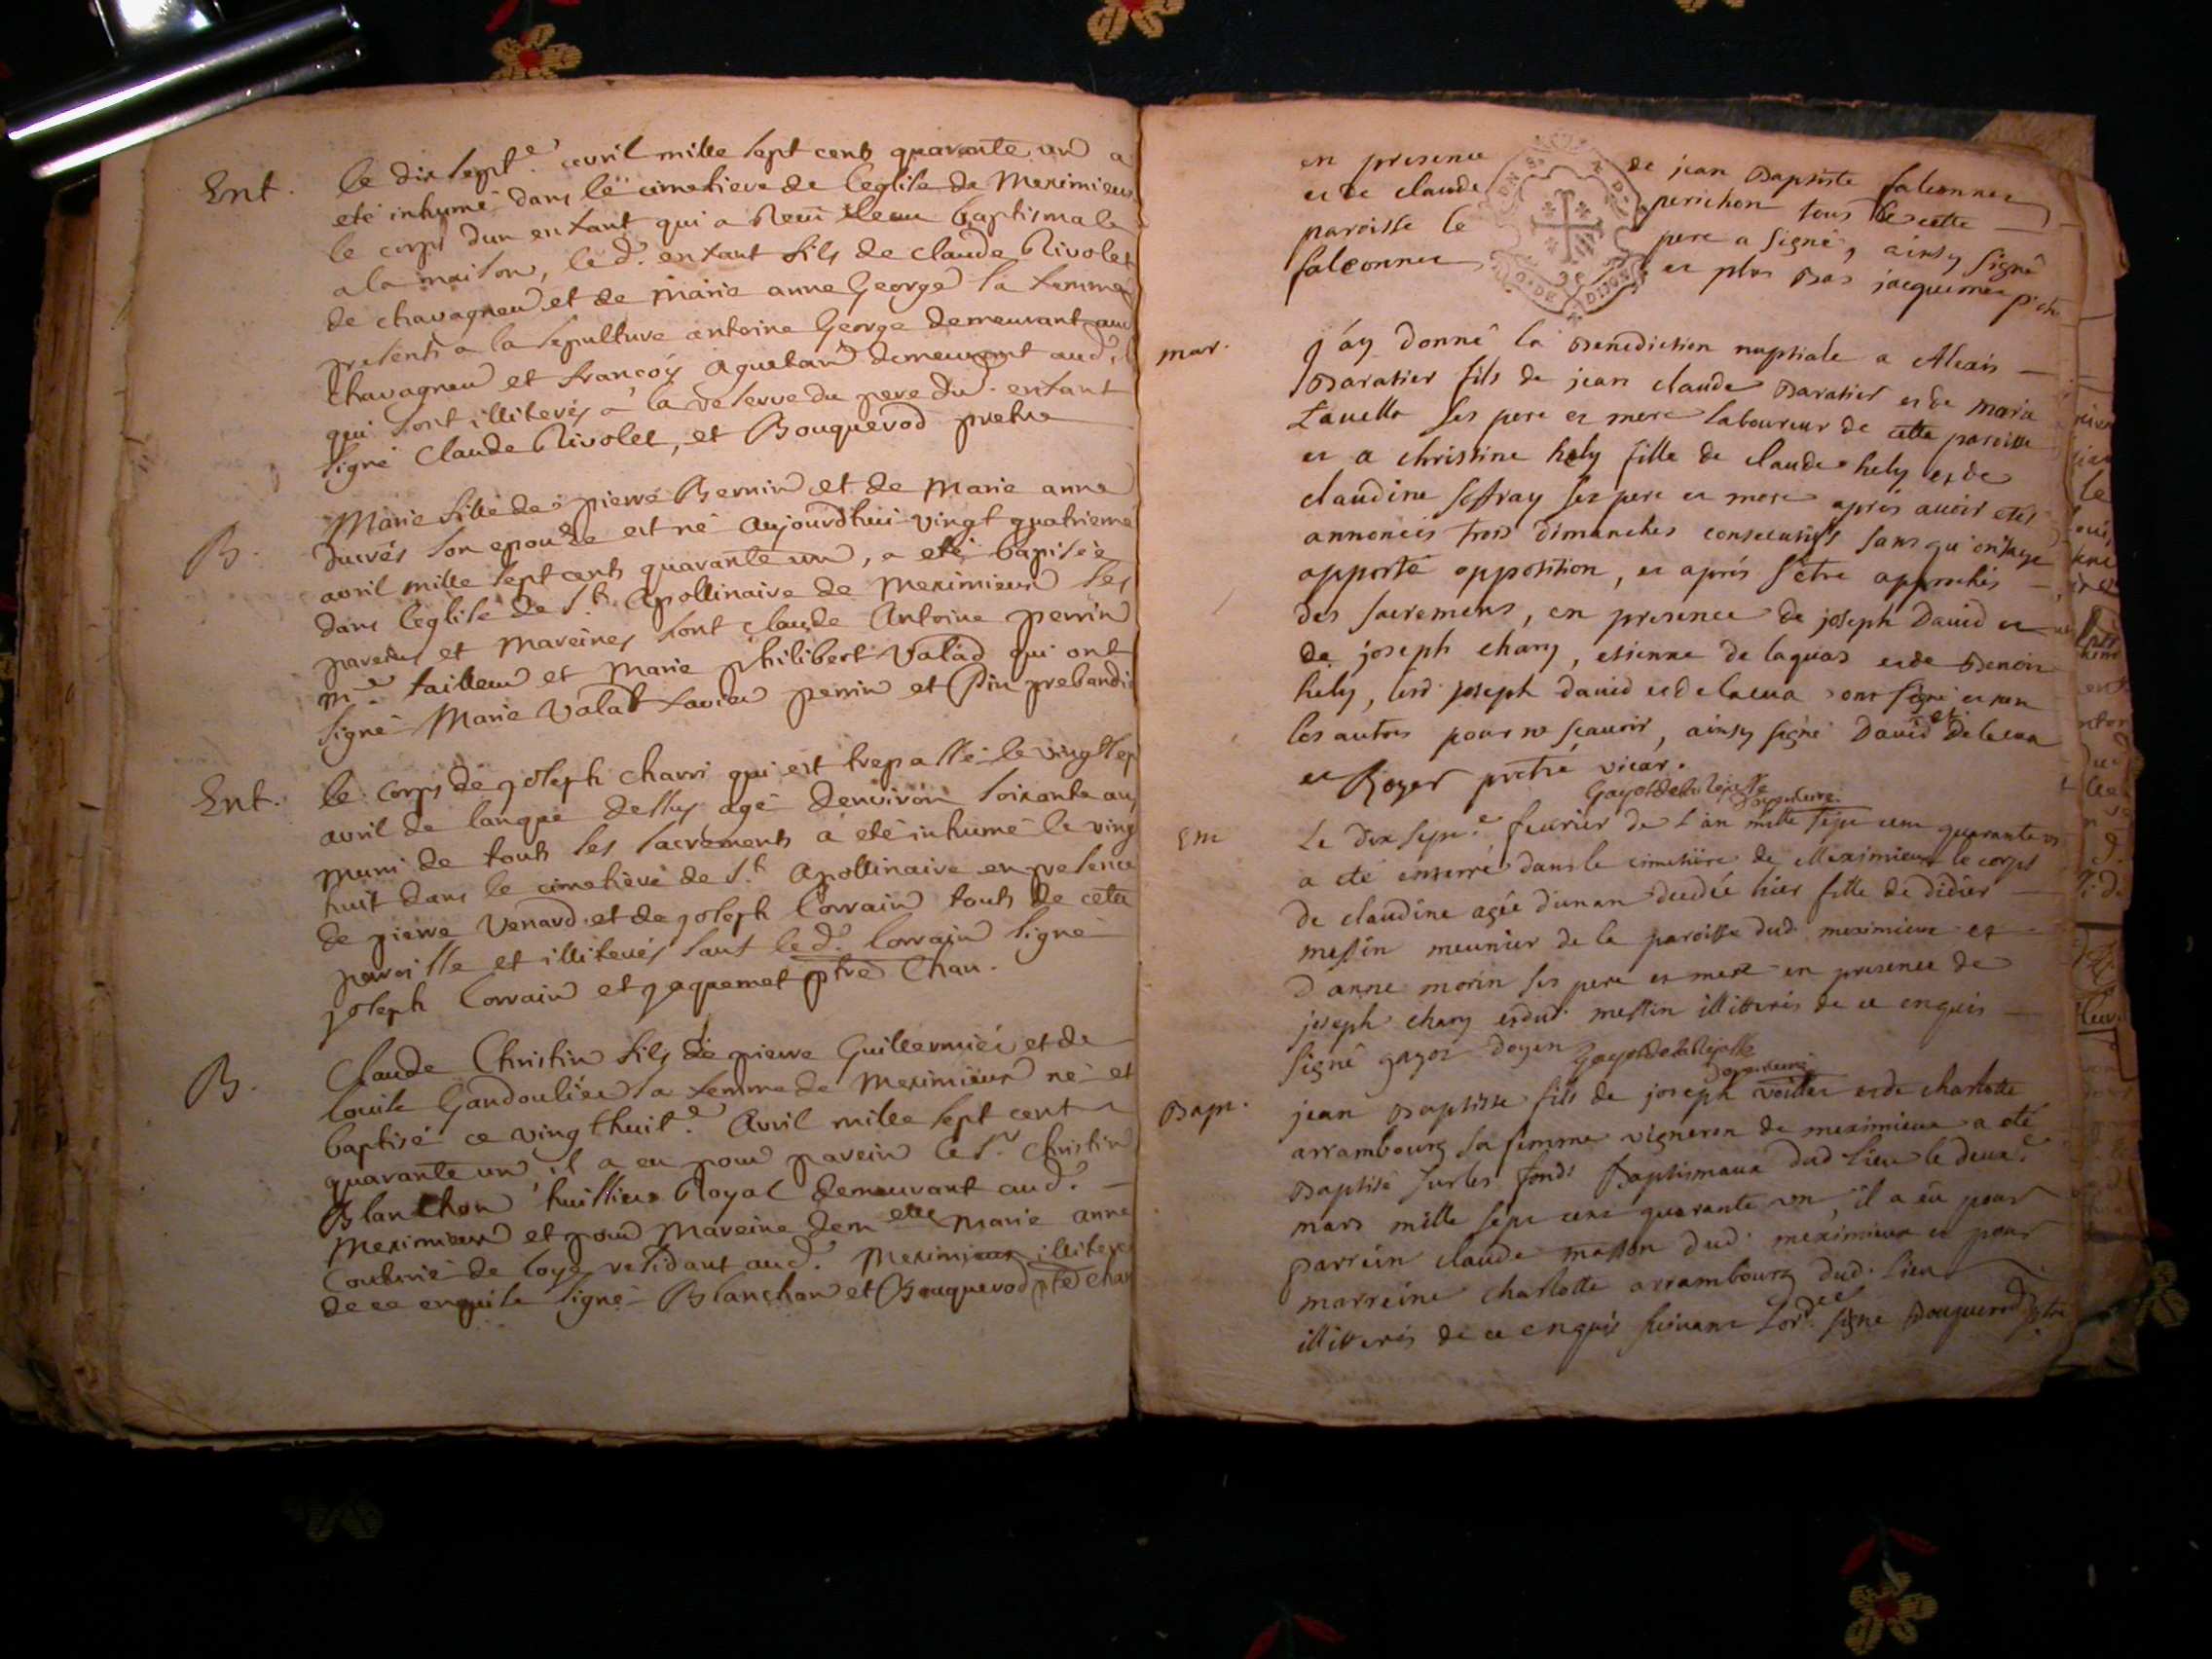 Ent. le dix sept.e avril mille sept cents quarante un a
eté inhumé dans le cimetiere de leglise de Meximieux
le corps dun enfant qui a Receu leau baptismale
a la maison, led. enfant fils de claude Rivolet
de chavagneu et de Marie anne George sa femme
presents a la sepulture antoine George demeurant aud.
Chavagneu et françoy aguetan demeurant aud.
qui sont illiterés a la reserve du pere dud. enfant
signé Claude Rivolet, et Bouquerod pretre
B. Marie fille de pierre Bernin et de Marie anne
Ducrés son epouse est né aujourdhui vingt quatrieme
avril mille sept cents quarante un, a eté baptisée
dans leglise de St. Apollinaire de meximieux ses
pareins et mareines sont claude Antoine perrin
m.e tailleur et Marie philibert Valad qui ont
signé Marie Valat perrin et prebandi
Ent. le corps de joseph charri qui est trepassé le vingt sep
avril de lanque dessus agé denviron soixante an
muni de touts les sacrements a eté inhumé le ving
huit dans le cimetiere de St. Apollinaire en presence
de pierre Venard et de joseph Lorrain touts de cette
paroisse et illiterés sauf led. Lorrain signé
joseph Lorrain et jaquemet ptre Chan.
B. Claude Christin fils de pierre Guillermier et de
louise Gandoulier sa femme de Meximieux né et
baptisé ce vingthuit.e Avril mille sept cent
quarante un, il a eu pour parein le Sr. Christin
Blanchon huissier Royal demeurant aud.
Meximieux et pour mareine demelle marie anne
de loye residant aud. Meximieux illitere
de ce enquise signé Blanchon et Bouquerod ptre chan
en presence de jean Baptiste falconner
et de claude perichon tous de cette
paroisse le pere a signé, ainsy signé
falconner et plus Bas jacquemet ptre
mar. j'ay donné la Benediction nuptiale a Alexis
Baratier fils de jean claude Baratier et de marie
ses pere et mere laboureur de cette paroisse
et a christine hely fille de claude hely et de
claudine ses pere et mere aprés avoir etés
annoncés trois dimanches consecutifs sans qu'on aye
apporté opposition, et aprés s'être approchés
des sacremens, en presence de joseph David et
de joseph chary, etienne de laquas et de Benoit
hely, lesd. joseph david et delacua ont signé et non
les autres pour ne sçavoir, ainsy signé David et Delacua
et Royer prêtre vicar.
Gayot
Ent Le dix sept.e fevrier de l'an mille sept cent quarante un
a eté enterré dans le cimetiere de Meximieux le corps
de claudine agée d'un an decedée hier fille de didier
messin meunier de la paroisse dud. meximieux et
d'anne morin ses pere et mere en presence de
joseph chary et dud. messin illitterés de ce enquis
signé gayot doyen Gayot
Bapt. jean Baptiste fils de joseph et de charlotte
arrambourg sa femme vigneron de meximieux a eté
Baptisé sur les fonds Baptismaux dud lieu le deux.e
mars mille sept cent quarante un, il a eu pour
parrein claude masson dud. meximieux et pour
marreine charlotte arrambourg dud. lieu
illitterés de ce enquis suivant Lord.ce signé Bouquerod ptre